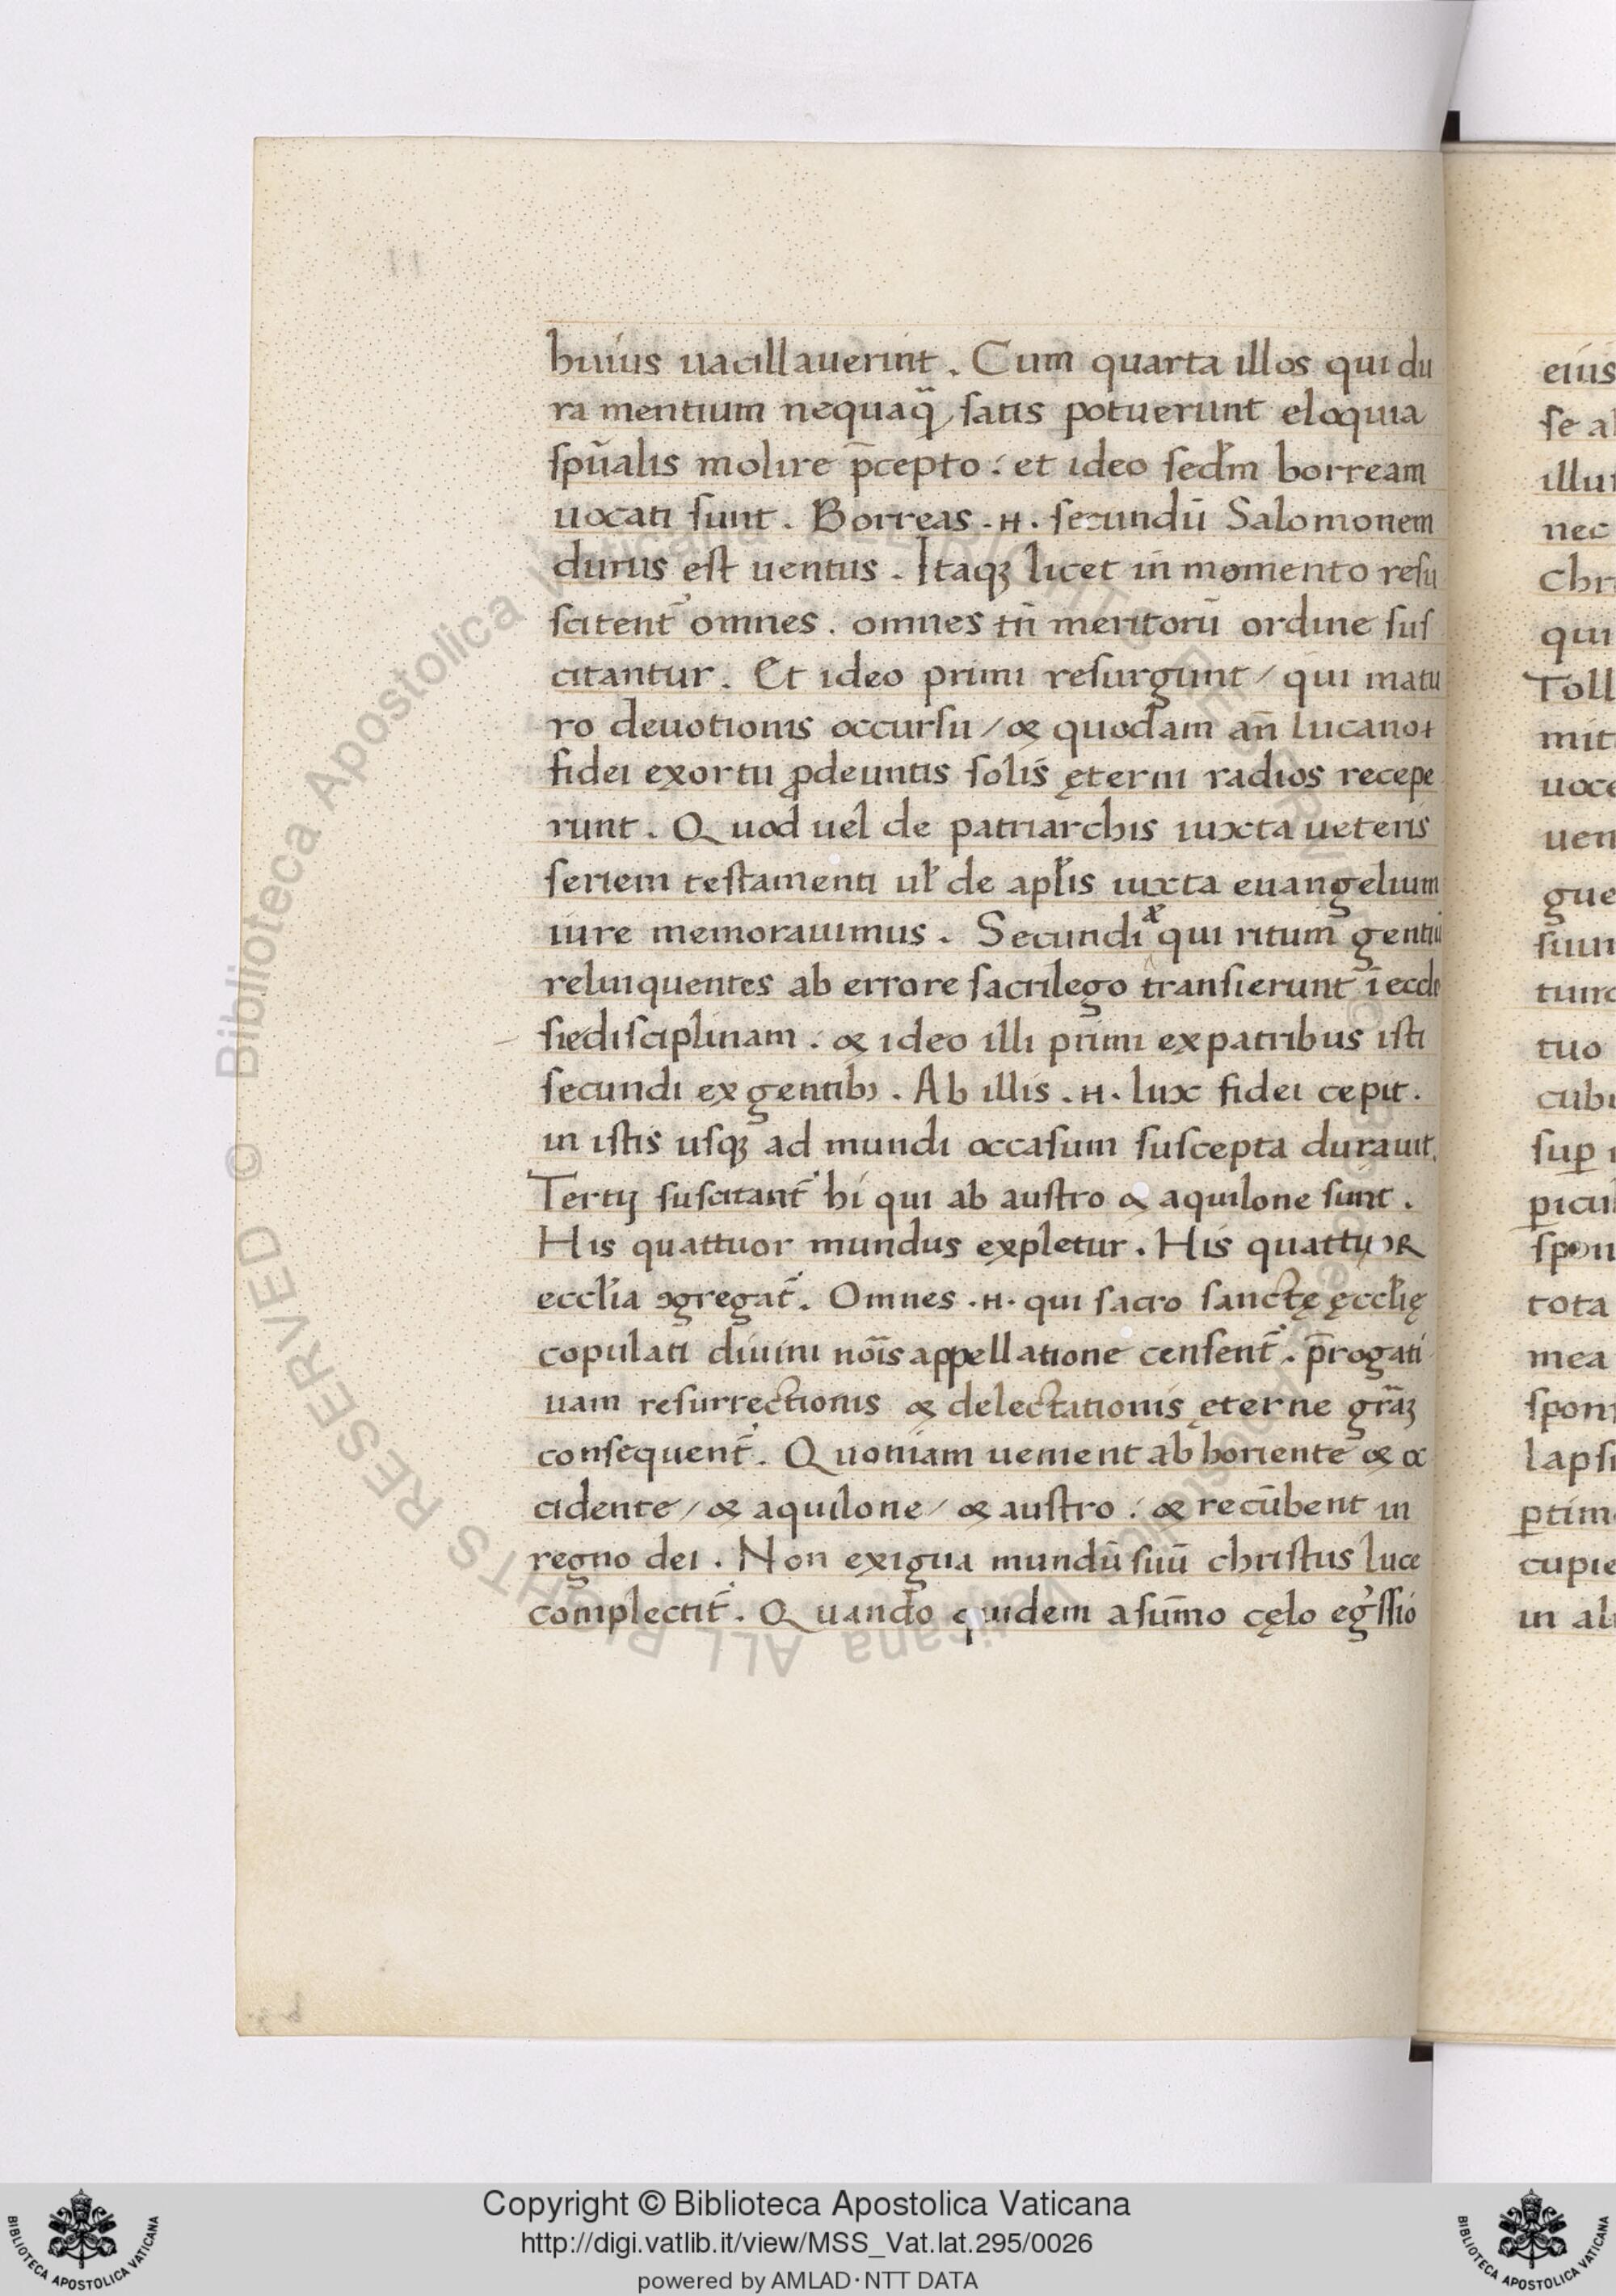 11
huius uacillauerint. Cum quarta illos qui du
ra mentium nequaq̃ satis potuerunt eloquia
spūalis molire p̄cepto: et ideo sedm̄ borream
uocati sunt. Borreas .н. secundū Salomonem
durus est uentus. Itaqꝫ licet in momento resu
scitent̃ omnes. omnes tñ meritorū ordine sus
citantur. Et ideo primi resurgunt / qui matu
ro deuotionis occursu / & quodam añ lucano
fidei exortu ꝓdeuntis solis ęterni radios recepe
runt. Quod uel de patriarchis iuxta ueteris
seriem testamenti ul̃ de apl̃is iuxta euangelium
iure memorauimus. Secundi qui ritum gentiū
relinquentes ab errore sacrilego transierunt ī eccle
siędisciplinam: & ideo illi primi expatribus isti
secundi ex gentibꝫ. Ab illis .н. lux fidei cepit.
in istis usqꝫ ad mundi occasum suscepta durauit.
Tertij suscitant̃ hi qui ab austro & aquilone sunt.
His quattuor mundus expletur. His quattuor
eccl̃ia ꝯgregat̃. Omnes .н. qui sacro sanctę ęccl̃ię
copulati diuini nōis appellatione censent̃. p̄rogati
uam resurrectionis & delectationis ęterne gr̃aꝫ
consequent̃. Quoniam uenient ab horiente & oc
cidente / & aquilone / & austro: & recūbent in
regno dei. Non exigua mundū suū christus luce
complectit̃. Quando quidem asūmo cęlo egr̃ssio
eius
se al
illu
nec
Chr
qui
Toll
mit
uoce
uen
gue
suu
tunc
tuo
cubi
suꝑ
ꝑicul
spon
tota
mea
spons
laps
ꝑtim
cupie
in ali
© Biblioteca Apostolica Vaticana ALL RIGHTS RESERVED
Copyright © Biblioteca Apostolica Vaticana
http://digi.vatlib.it/view/MSS_Vat.lat.295/0026
powered by AMLAD·NTT DATA
BIBLIOTECA APOSTOLICA VATICANA
BIBLIOTECA APOSTOLICA VATICANA